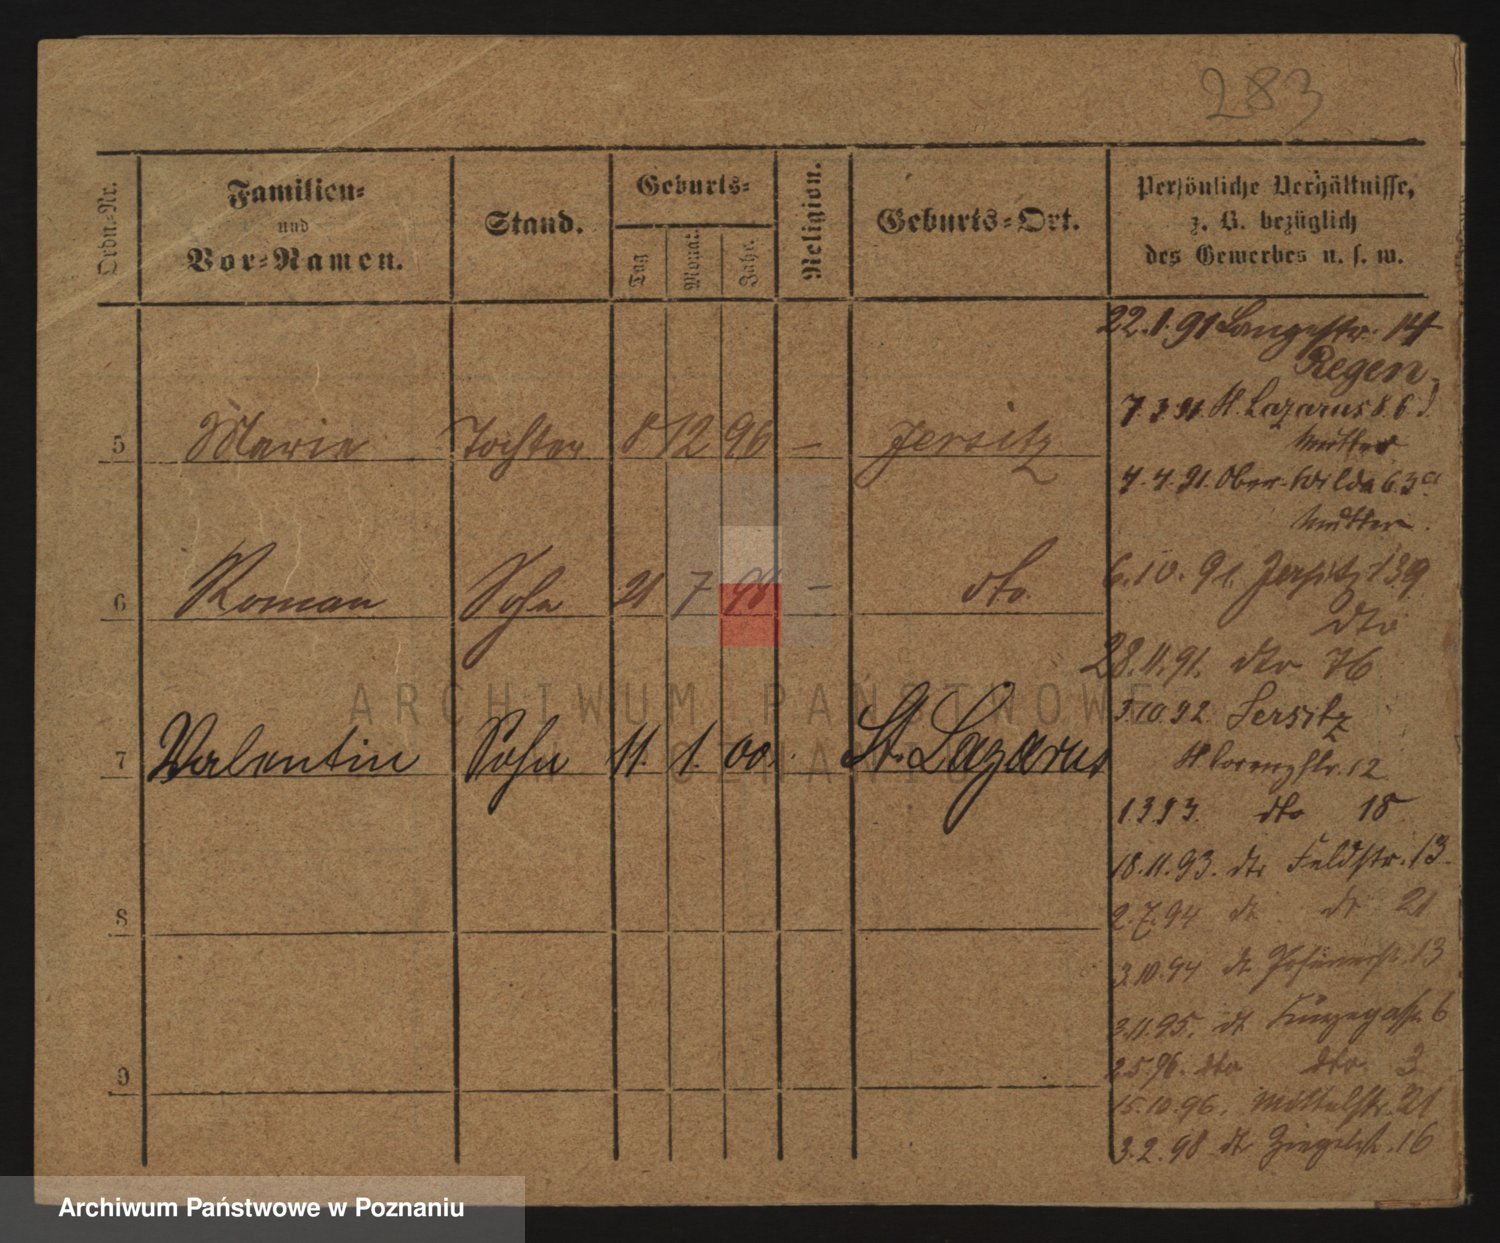 283
Ordn.-Nr.
Familien-
und
Vor-Namen.
Stand.
Geburts-
Tag
Monat.
Jahr.
Religion.
Geburts-Ort.
Persönliche Verhältnisse,
z. B. bezüglich
des Gewerbes u. s. w.
22.1.91 Langestr. 14
Regen
7.3.91. St. Lazarus 8. b.
Mutter
5 Marie Tochter 8 12 96 — Jersitz
4.4.91. Ober-Wilda 63a
Mutter.
6 Roman Sohn 21 7 98 — dto.
6.10.91. Jersitz 139
dto
28.11.91. dto 76
3.10.92 Jersitz
7 Valentin Sohn 11. 1. 00. St. Lazarus
12
1393. dto 15
18.11.93. dto Feldstr. 13.
8
2.7.94 dt dt 21
3.10.94 dt 13
3.11.95. dt 6
25.96. dto dto 3
9
15.10.96. Mittelstr. 21
3.2.98 dt Ziegelstr. 16
ARCHIWUM PAŃSTWOWE
Archiwum Państwowe w Poznaniu